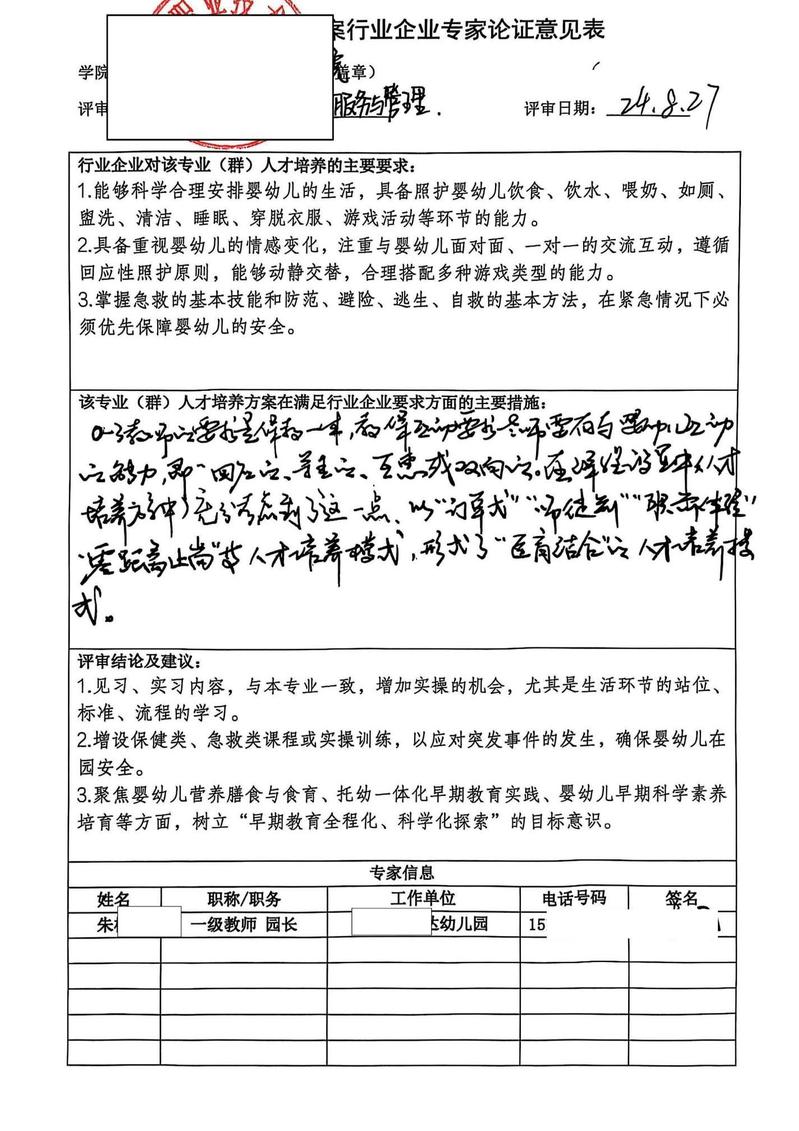 案行业企业专家论证意见表
学院 盖章）
评审 服务与管理. 评审日期：24.8.27
行业企业对该专业（群）人才培养的主要要求：
1.能够科学合理安排婴幼儿的生活，具备照护婴幼儿饮食、饮水、喂奶、如厕、
盥洗、清洁、睡眠、穿脱衣服、游戏活动等环节的能力。
2.具备重视婴幼儿的情感变化，注重与婴幼儿面对面、一对一的交流互动，遵循
回应性照护原则，能够动静交替，合理搭配多种游戏类型的能力。
3.掌握急救的基本技能和防范、避险、逃生、自救的基本方法，在紧急情况下必
须优先保障婴幼儿的安全。
该专业（群）人才培养方案在满足行业企业要求方面的主要措施：
0-3教师的要求是保教一体，教保互动要求老师要有与婴幼儿互动
的能力，即“回应的、尊重的、互惠或双向的。在课程设置中（人才
培养方案中）充分考虑到了这一点、以“订单式”“师徒制”“职业体验”
“零距离上岗”等人才培养模式，形成了“医育结合”的人才培养模
式。
评审结论及建议：
1.见习、实习内容，与本专业一致，增加实操的机会，尤其是生活环节的站位、
标准、流程的学习。
2.增设保健类、急救类课程或实操训练，以应对突发事件的发生，确保婴幼儿在
园安全。
3.聚焦婴幼儿营养膳食与食育、托幼一体化早期教育实践、婴幼儿早期科学素养
培育等方面，树立“早期教育全程化、科学化探索”的目标意识。
专家信息
姓名 职称/职务 工作单位 电话号码 签名
朱 一级教师 园长 达幼儿园 15